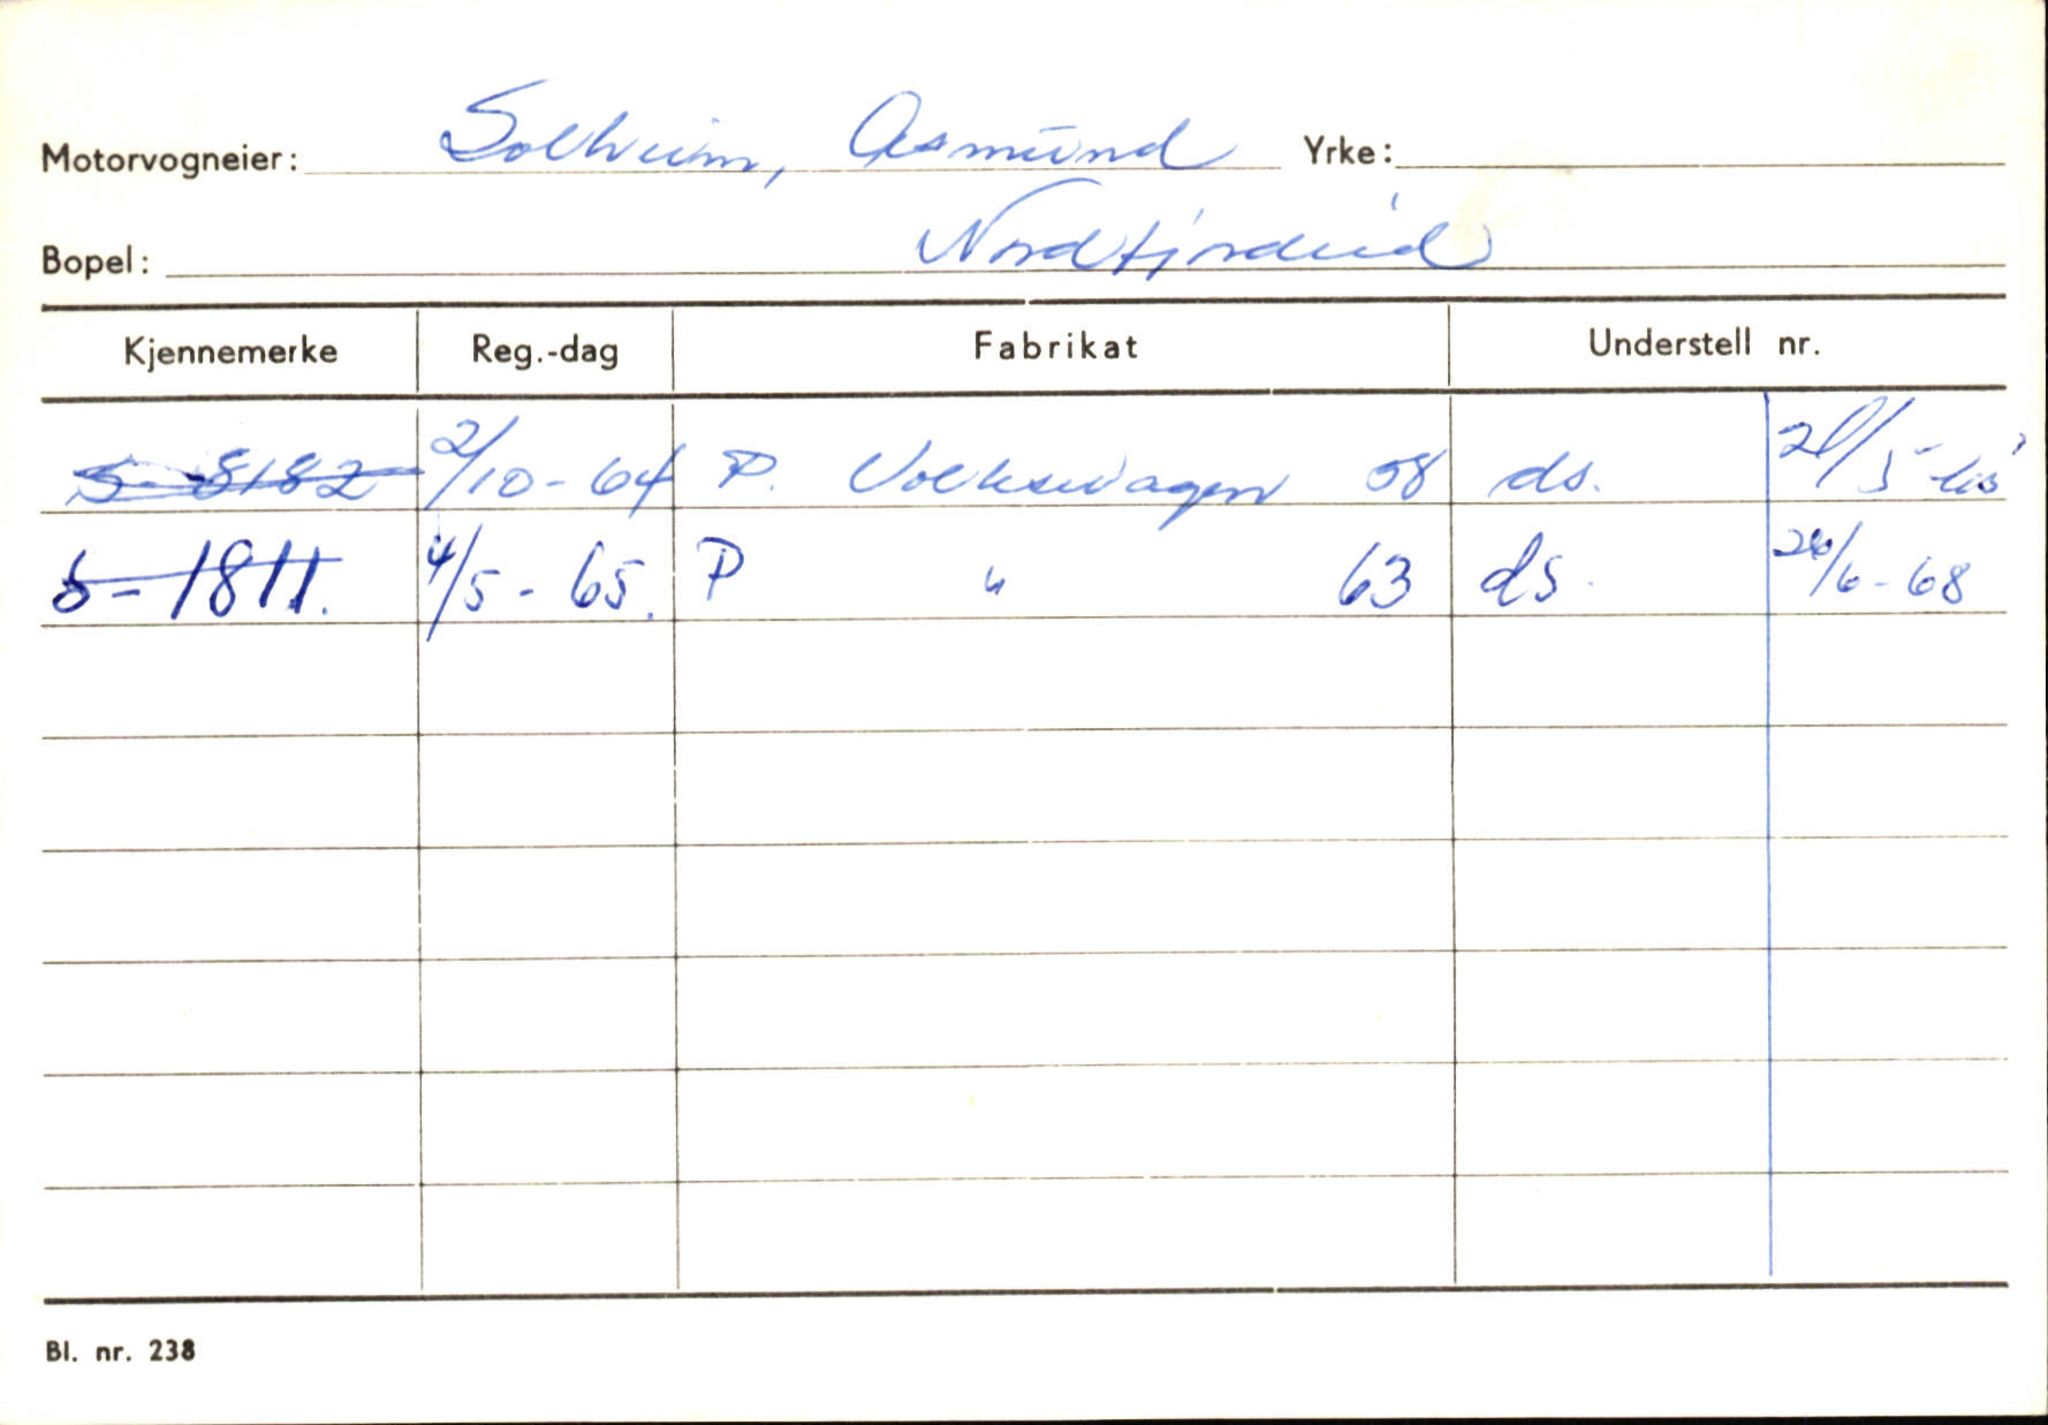 Motorvogneier: Solheim, Asmund Yrke:
Bopel: Nordfjordeid
Kjennemerke Reg.-dag Fabrikat Understell nr.
S-8182 2/10-64 P. Volkswagen 58 ds. 21/5-65
S-1811. 4/5-65. P " 63 ds. 26/6-68
Bl. nr. 238